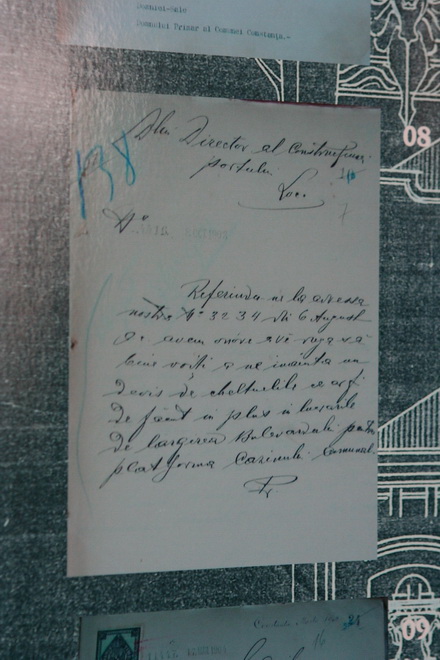 Domnului Primar al Comunei Constanța.-
08
138
Dlui Director al Construcțiunei
portului
Loco.
No
Referindu ne la adresa
nostră No 3234 din 6 August
avem onóre a vă ruga să
bine voiți a ne înainta un
devis de cheltuelile ce ar fi
de făcut în plus în lucrările
de largirea Bulevardului pentru
platforma Cazinului Comunal
09
16